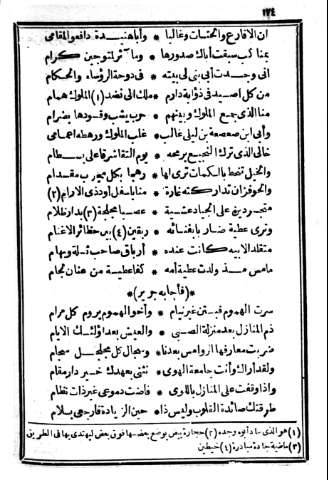 ١٧٤
ان الاقارع والحتات وغالبا * وأبا هنيدة دافعو المقامى
بمنا كب سبقت أباك صدورها * وما آثر لمتوجين كرام
انى وجدت أبى بنى لى بيته * فى دوحة الرؤساء والحكام
من كل أصيد فى ذؤابة دارم * ملك الى نضد (١) الملوك همام
منا الذى جمع الملوك وبينهم * حرب يشب وقودها بضرام
وأبى ابن صعصعة بن ليلى غالب * غلب الملوك ورهطه أعمامى
خالى الذى ترك النجيع برمحه * يوم النقا شرقا على بسطام
والخيل تنحط بالكماة ترى لها * رهجا بكل مجرب مقدام
والحوفزان تداركته غارة * منا بأسفل أود ذى الآرام (٢)
متجردين على الجياد عشية * عصبا مجلحة (٣) بدار ظلام
وترى عطية ضاربا بفنائه * ربقين (٤) بين حظائر الاغنام
متقلدا لابيه كانت عنده * أرباق صاحب ثلة وبهام
ما مس مذ ولدت عطية أمه * كفا عطية من عنان لجام
* (فأجابه جرير) *
سرت الهموم فبتن غير نيام * وأخو الهموم يروم كل مرام
ذم المنازل بعد منزلة اللوى * والعيش بعد أولئك الايام
ضربت معارفها الروامس بعدنا * وسجال كل مجلجل سجام
ولقد أراك وأنت جامعة الهوى * نثنى بعهدك خير دار مقام
واذا وقفت على المنازل باللوى * فاضت دموعى غير ذات نظام
طرقتك صائدة القلوب وليس ذا * حين الزيارة فارجعى بسلام
(١) هو الذى ساد أبوه وجده (٢) حجارة بيض يوضع بعضها فوق بعض ليهتدى بها فى الطريق
(٣) ماضية جادة مبادرة (٤) خيطين